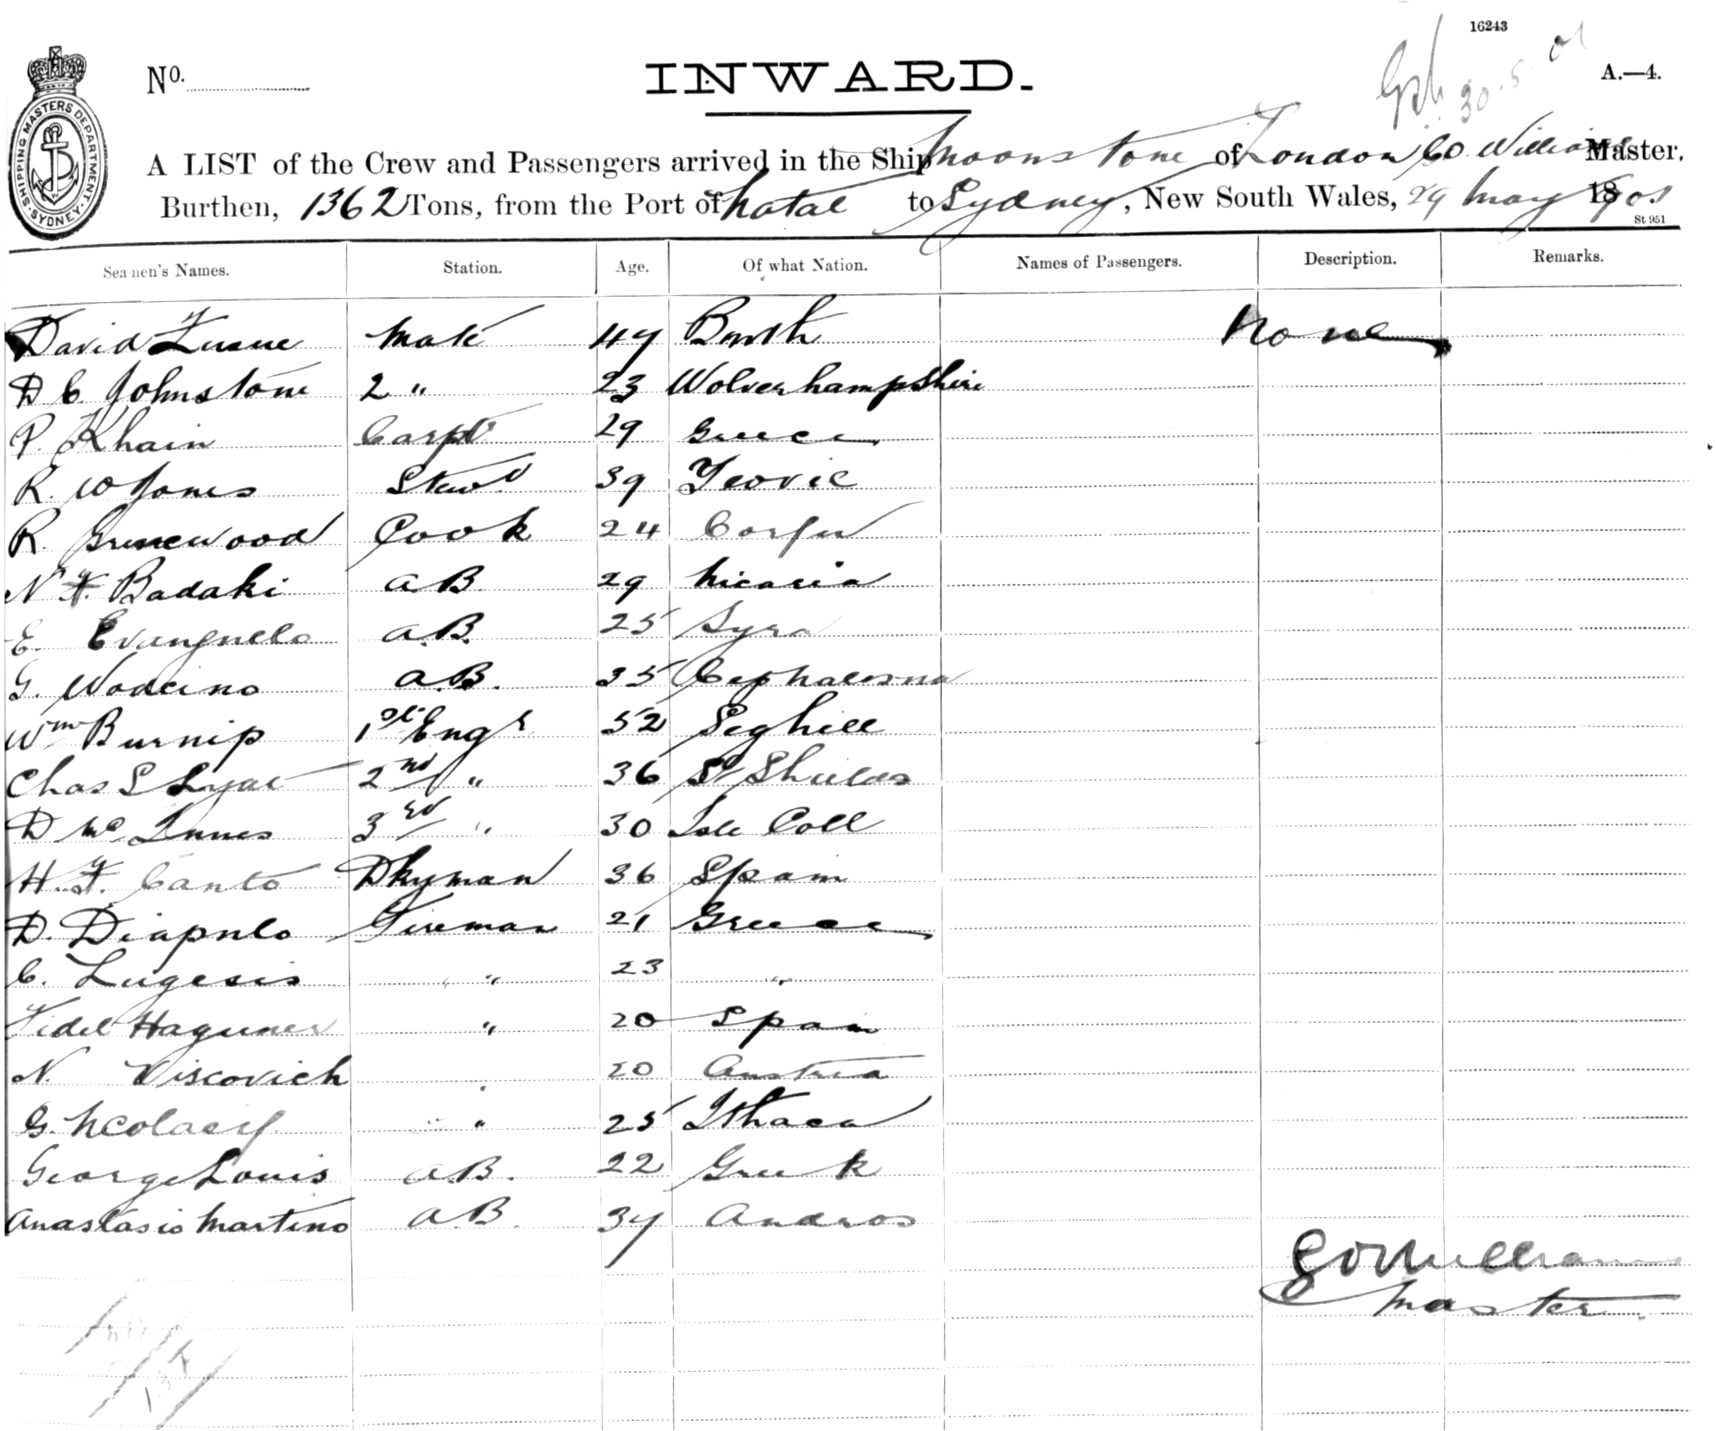 16243
Nº.
INWARD.
A.—4.
30.5.01
SHIPPING MASTERS DEPARTMENT. SYDNEY.
A LIST of the Crew and Passengers arrived in the Ship Moonstone of London Williams Master,
Burthen, 1362 Tons, from the Port of Natal to Sydney, New South Wales, 29 May 1901
St 951
Seamen's Names. Station. Age. Of what Nation. Names of Passengers. Description. Remarks.
David Mate 47 None
D C Johnstone 2 " 23 Wolverhampshire
P. Khain Carptr 29 Greece
R. W Jones Stewd 39 Yeovil
R. Cook 24 Corfu
N F. Badaki AB 29 Nicaria
E. Evangnelo A.B. 25 Syra
G. Wodcino A.B. 35 Cephalonia
Wm Burnip 1st Engr 52 Seghill
Chas S Lyal 2nd " 36 S Shields
D Mc Innes 3rd " 30 Isle Coll
H. F. Canto Dkyman 36 Spain
D. Diapnlo Fireman 21 Greece
C. Lugesis " 23 "
Fidel Haguner " 20 Spain
N. Viscovich 20 Austria
G. Ncolasy " 25 Ithaca
George Louis AB. 22 Greek
Anastasio Martino A.B. 37 Andros
Williams
Master